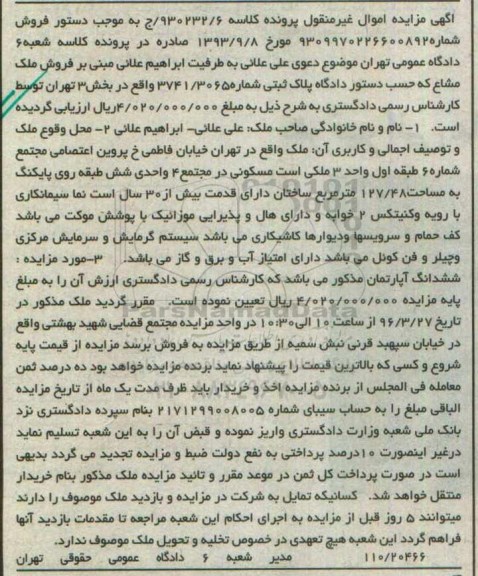 آگهی مزایده اموال غیرمنقول پرونده کلاسه ۹۳۰۲۳۲/۶/ج به موجب دستور فروش
شماره۹۳۰۹۹۷۰۲۲۶۶۰۰۸۹۲ مورخ ۱۳۹۳/۹/۸ صادره در پرونده کلاسه شعبه۶
دادگاه عمومی تهران موضوع دعوی علی علائی به طرفیت ابراهیم علائی مبنی بر فروش ملک
مشاع که حسب دستور دادگاه پلاک ثبتی شماره۳۷۴۱/۳۰۶۵ واقع در بخش۳ تهران توسط
کارشناس رسمی دادگستری به شرح ذیل به مبلغ ۴/۰۲۰/۰۰۰/۰۰۰ریال ارزیابی گردیده
است. ۱- نام و نام خانوادگی صاحب ملک: علی علائی- ابراهیم علائی ۲- محل وقوع ملک
و توصیف اجمالی و کاربری آن: ملک واقع در تهران خیابان فاطمی خ پروین اعتصامی مجتمع
شماره۶ طبقه اول واحد ۳ ملکی است مسکونی در مجتمع۴ واحدی شش طبقه روی پایکنگ
به مساحت۱۲۷/۴۸ مترمربع ساختان دارای قدمت بیش از۳۰ سال است نما سیمانکاری
با رویه وکنیتکس ۲ خوابه و دارای هال و پذیرایی موزائیک با پوشش موکت می باشد
کف حمام و سرویسها ودیوارها کاشیکاری می باشد سیستم گرمایش و سرمایش مرکزی
وچیلر و فن کوئل می باشد دارای امتیاز آب و برق و گاز می باشد. ۳-مورد مزایده :
ششدانگ آپارتمان مذکور می باشد که کارشناس رسمی دادگستری ارزش آن را به مبلغ
پایه مزایده ۴/۰۲۰/۰۰۰/۰۰۰ ریال تعیین نموده است. مقرر گردید ملک مذکور در
تاریخ ۹۶/۳/۲۷ از ساعت ۱۰ الی۱۰:۳۰ در واحد مزایده مجتمع قضایی شهید بهشتی واقع
در خیابان سپهبد قرنی نبش سمیه از طریق مزایده به فروش برسد مزایده از قیمت پایه
شروع و کسی که بالاترین قیمت را پیشنهاد نماید برنده مزایده خواهد بود ده درصد ثمن
معامله فی المجلس از برنده مزایده اخذ و خریدار باید ظرف مدت یک ماه از تاریخ مزایده
الباقی مبلغ را به حساب سیبای شماره ۲۱۷۱۲۹۹۰۰۸۰۰۵ بنام سپرده دادگستری نزد
بانک ملی شعبه وزارت دادگستری واریز نموده و قبض آن را به این شعبه تسلیم نماید
درغیر اینصورت ۱۰درصد پرداختی به نفع دولت ضبط و مزایده تجدید می گردد بدیهی
است در صورت پرداخت کل ثمن در موعد مقرر و تائید مزایده ملک مذکور بنام خریدار
منتقل خواهد شد. کسانیکه تمایل به شرکت در مزایده و بازدید ملک موصوف را دارند
میتوانند ۵ روز قبل از مزایده به اجرای احکام این شعبه مراجعه تا مقدمات بازدید آنها
فراهم گردد این شعبه هیچ تعهدی در خصوص تخلیه و تحویل ملک موصوف ندارد.
۱۱۰/۲۰۴۶۶ مدیر شعبه ۶ دادگاه عمومی حقوقی تهران
ParsNamadData